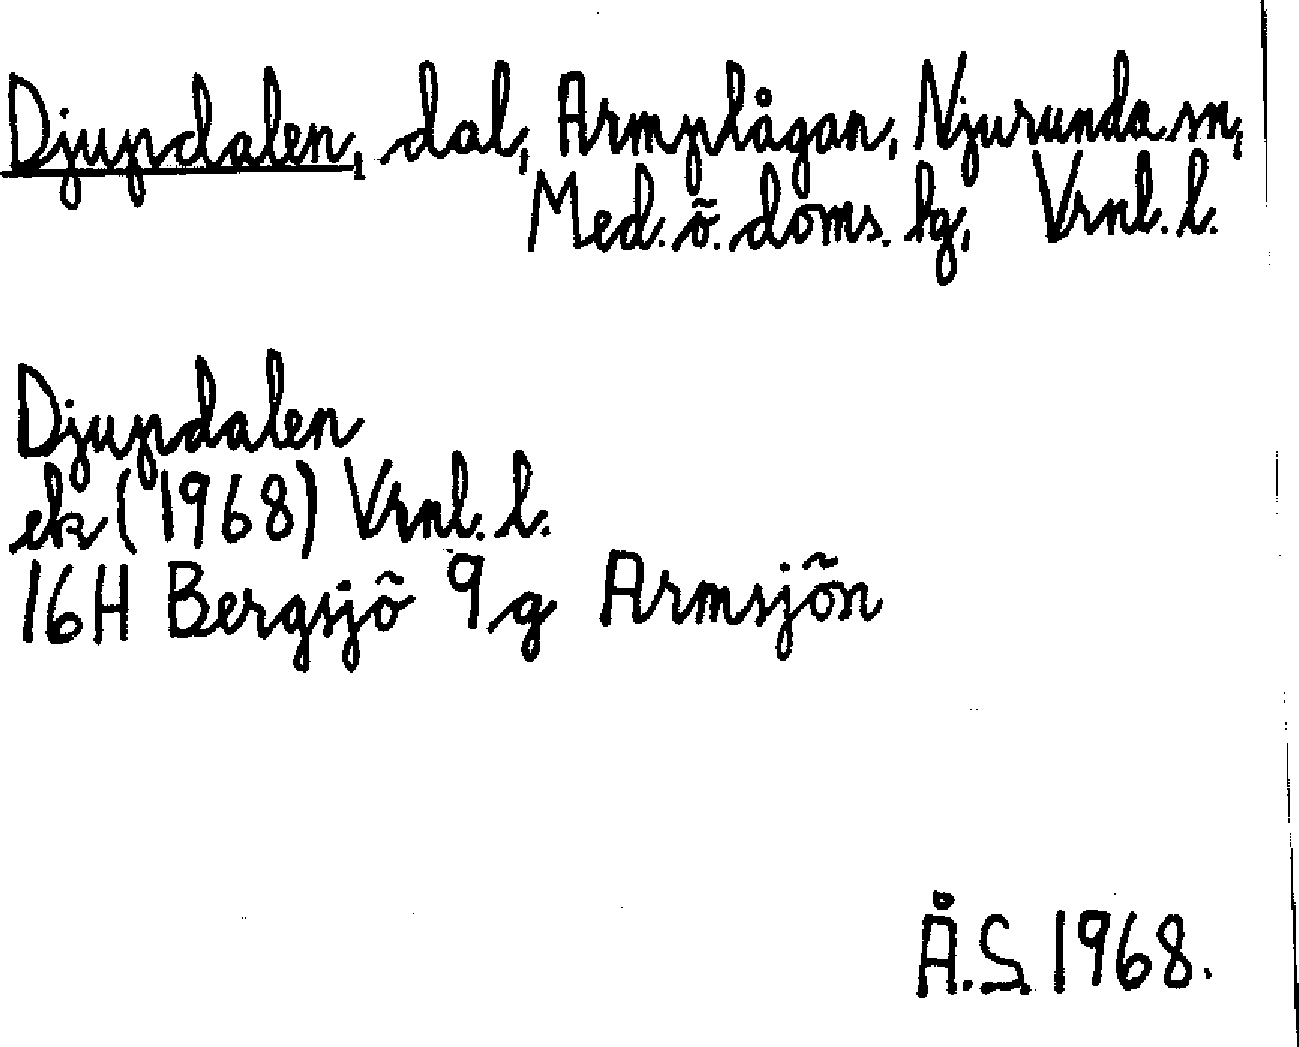 Djupdalen, dal, Armplågan, Njurunda sn,
Med. ö. doms. lg, Vrnl. l.
Djupdalen
ek (1968) Vrnl. l.
16H Bergsjö 9g Armsjön
Å.S. 1968.